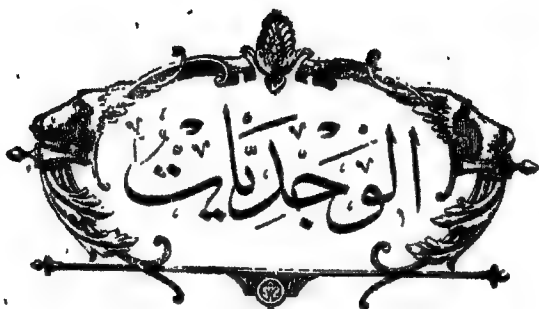 الوَجْدِيَّات